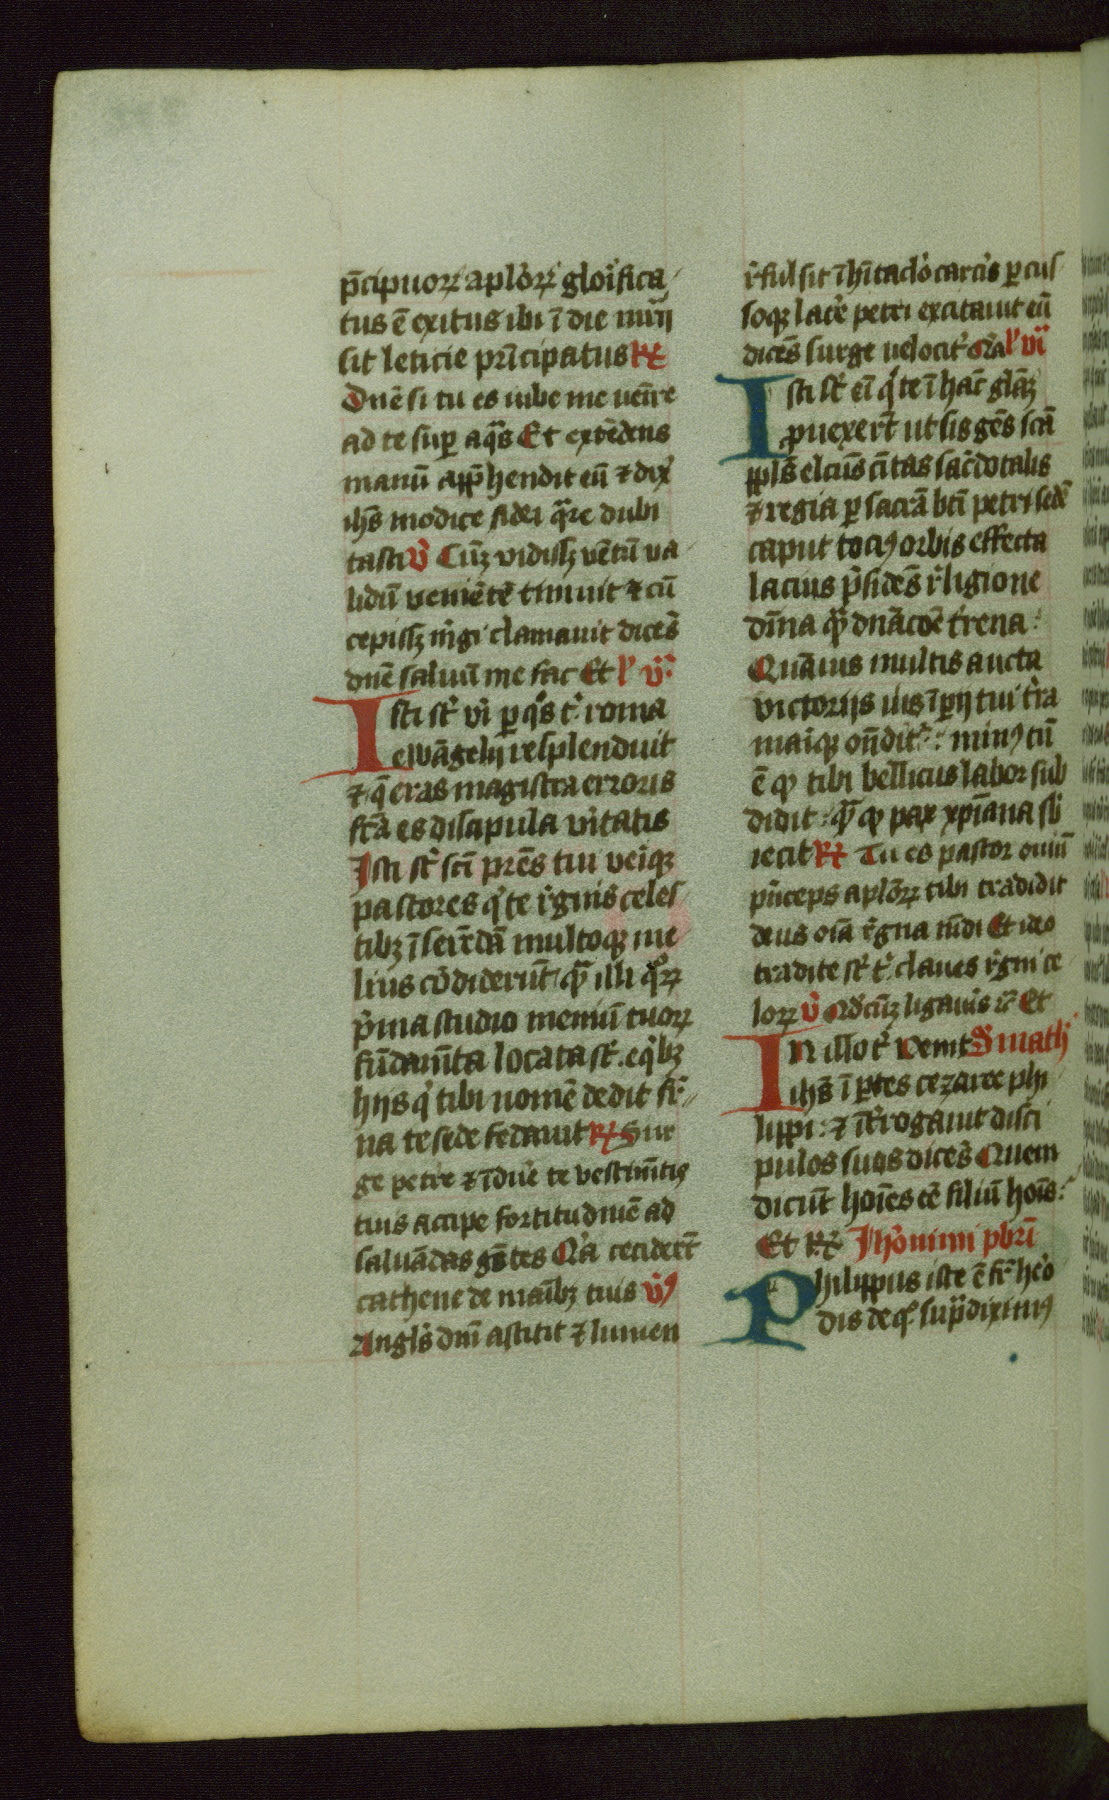 p̄cipuoꝝ aplōꝝ gloīfica
tus ē exitus ibi ī die mīrij
sit leticie prīcipatus ℟
Dnē si tu es iube me uenīre
ad te suꝑ aq̄s Et extēdens
manū app̄hendit eū ⁊ dix̄
ih̄s modice fidei q̄re dubi
tasti v̄ Cūꝫ vidissꝫ vētū va
lidū veniētē timuit ⁊ cū
cepissꝫ m̄gi clamauit dicēs
dnē saluū me fac Et l̓ v̄
Isti st̄ vi ꝑ q̊s t̓ roma
ewāgelij resplenduit
⁊ q̄ eras magistra erroris
fc̄a es discipula vītatis
Isti st̄ scī prēs tui veiqꝫ
pastores q̓ te r̓gnis celes
tibꝫ īserēdā multoqꝫ me
lius cōdiderūt qꝫ̄ illi q̊ꝝ
p̓ma studio meniū tuoꝝ
fūdamīta locata st̄ eq̓bꝫ
hijs q̓ tibi nomē dedit fr̄
na te sede fedauit ℟ Sur
ge petre ⁊ īdue te vestimītis
tuis accipe fortitudinē ad
saluādas gētes Qꝛa cecider̄t
cathene de maībꝫ tuis v̓ꝰ
Angl̓s dnī astitit ⁊ lumen
r̓fulsit ī hītaclo carcis ꝑcus
soqꝫ latē petri excitauit eū
dicēs surge velocit̓ Gr̄a l̓ vi
Isti st̄ eī q̓ te ī hāc gl̄aꝫ
ꝓuexer̄t ut sis gēs scā
ppl̄s elcūs cītas sac̓dotalis
⁊ regia ꝑ sacrā btī petri sedē
caput tociꝰ orbis effecta
lacius p̓sidēs r̓ligione
dīna qꝫ̄ dn̄acōe t̓rena
Quāuis multis aucta
victorijs ius īꝑij tui t̓ra
maiqꝫ ōndit̓ : minꝰ tn̄
ē qꝫ tibi bellicus labor sub
didit : qꝫ̄ qꝫ pax xpīana sb̄
iecit ℟ Tu es pastor ouiū
pi̓ceps aplōꝝ tibi tradidit
deus oīa r̓gna mūdi Et ideo
tradite st̄ t̓ claues r̓gni ce
loꝝ v̄ Qd̓cūꝫ ligaūis ⁊c̄ Et
In illo t̓ Venit S̄ math̓
ih̄s ī ꝑtes cezaree phi
lippi : ⁊ īt̓rogauit disci
pulos suos dicēs Quem
dicūt hoīes eē filiū hoīs
Et ℟ Jherōnimi pbrī
Philippus iste ē fr̄ hero
dis de qꝫ sup̄diximꝰ